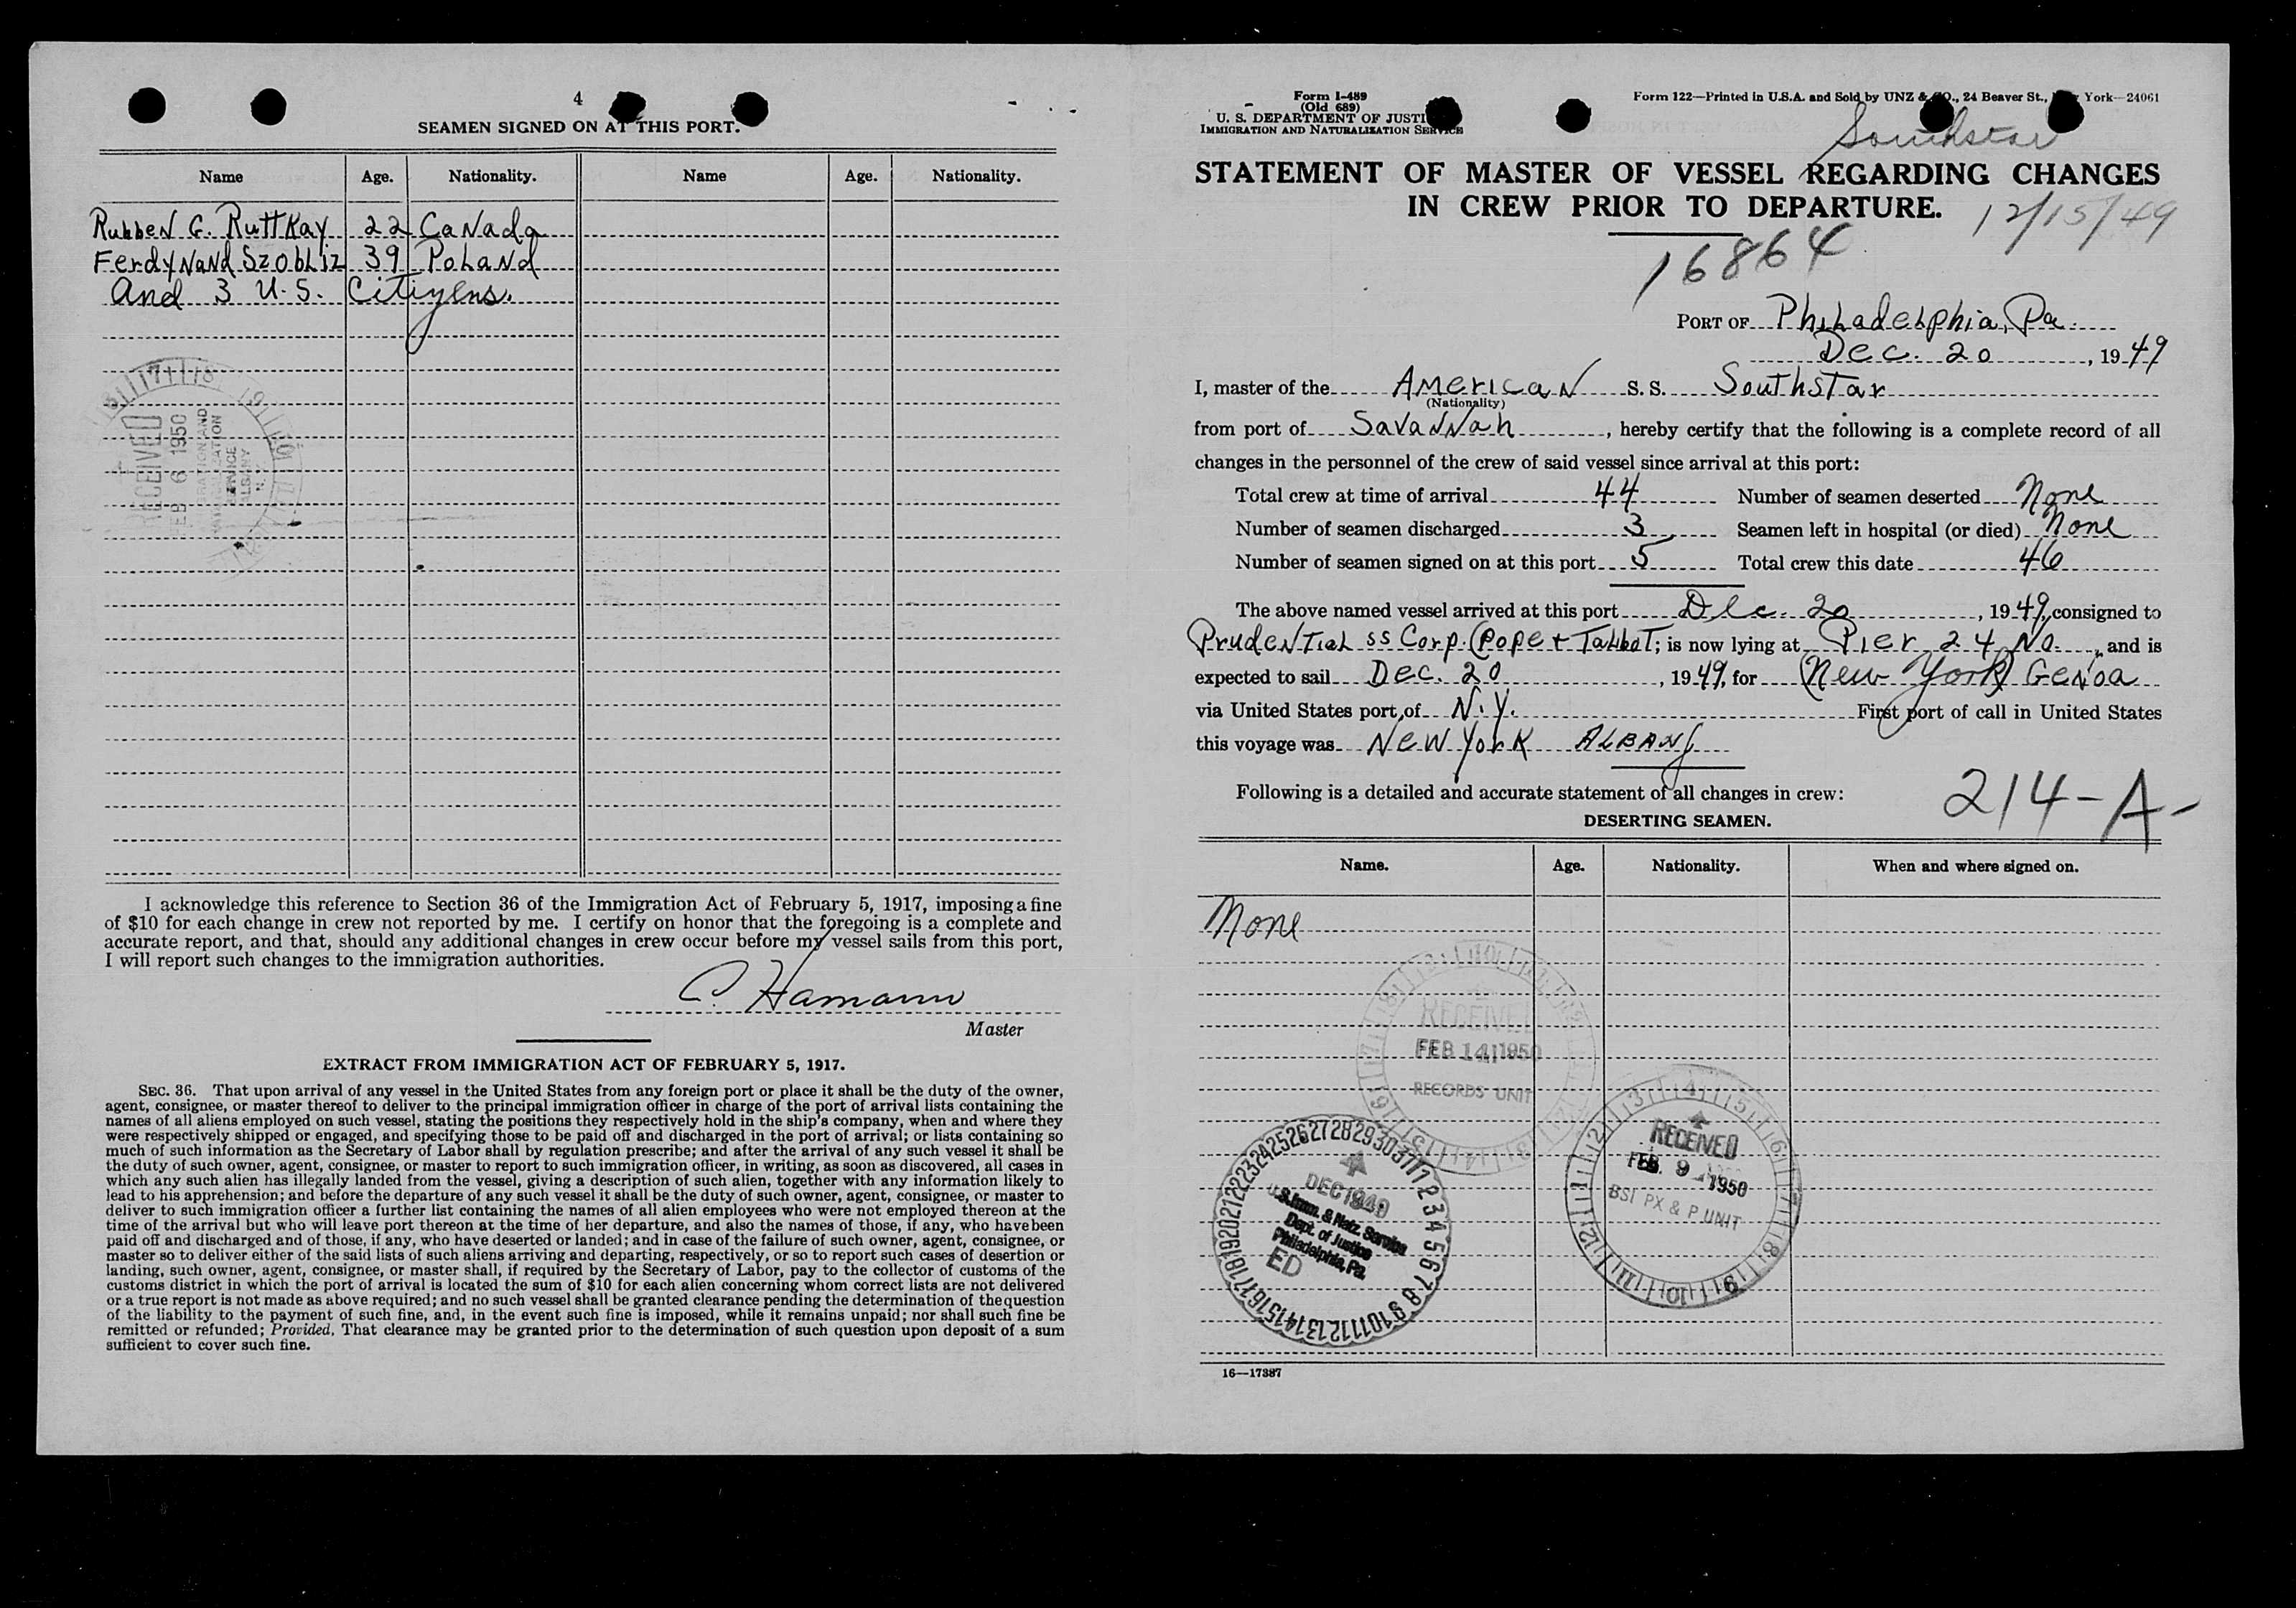 4
SEAMEN SIGNED ON AT THIS PORT.
Name Age. Nationality. Name Age. Nationality.
Rubben G. Ruttkay 22 Canada
Ferdynand Szobliz 39 Poland
And 3 U.S. Citizens.
RECEIVED
FEB 6 1950
ALBANY
I acknowledge this reference to Section 36 of the Immigration Act of February 5, 1917, imposing a fine
of $10 for each change in crew not reported by me. I certify on honor that the foregoing is a complete and
accurate report, and that, should any additional changes in crew occur before my vessel sails from this port,
I will report such changes to the immigration authorities.
C. Hamann
Master
EXTRACT FROM IMMIGRATION ACT OF FEBRUARY 5, 1917.
SEC. 36. That upon arrival of any vessel in the United States from any foreign port or place it shall be the duty of the owner,
agent, consignee, or master thereof to deliver to the principal immigration officer in charge of the port of arrival lists containing the
names of all aliens employed on such vessel, stating the positions they respectively hold in the ship's company, when and where they
were respectively shipped or engaged, and specifying those to be paid off and discharged in the port of arrival; or lists containing so
much of such information as the Secretary of Labor shall by regulation prescribe; and after the arrival of any such vessel it shall be
the duty of such owner, agent, consignee, or master to report to such immigration officer, in writing, as soon as discovered, all cases in
which any such alien has illegally landed from the vessel, giving a description of such alien, together with any information likely to
lead to his apprehension; and before the departure of any such vessel it shall be the duty of such owner, agent, consignee, or master to
deliver to such immigration officer a further list containing the names of all alien employees who were not employed thereon at the
time of the arrival but who will leave port thereon at the time of her departure, and also the names of those, if any, who have been
paid off and discharged and of those, if any, who have deserted or landed; and in case of the failure of such owner, agent, consignee, or
master so to deliver either of the said lists of such aliens arriving and departing, respectively, or so to report such cases of desertion or
landing, such owner, agent, consignee, or master shall, if required by the Secretary of Labor, pay to the collector of customs of the
customs district in which the port of arrival is located the sum of $10 for each alien concerning whom correct lists are not delivered
or a true report is not made as above required; and no such vessel shall be granted clearance pending the determination of the question
of the liability to the payment of such fine, and, in the event such fine is imposed, while it remains unpaid; nor shall such fine be
remitted or refunded; Provided, That clearance may be granted prior to the determination of such question upon deposit of a sum
sufficient to cover such fine.
Form I-489
(Old 689)
U. S. DEPARTMENT OF JUSTI
IMMIGRATION AND NATURALIZATION SERVICE
Form 122—Printed in U.S.A. and Sold by UNZ & CO., 24 Beaver St., York—24061
Southstar
STATEMENT OF MASTER OF VESSEL REGARDING CHANGES
IN CREW PRIOR TO DEPARTURE.
12/15/49
16864
PORT OF Philadelphia, Pa.
Dec. 20, 1949
I, master of the American S. S. Southstar
(Nationality)
from port of Savannah, hereby certify that the following is a complete record of all
changes in the personnel of the crew of said vessel since arrival at this port:
Total crew at time of arrival 44 Number of seamen deserted None
Number of seamen discharged 3 Seamen left in hospital (or died) None
Number of seamen signed on at this port 5 Total crew this date 46
The above named vessel arrived at this port Dec. 20, 1949, consigned to
Prudential SS Corp. (Pope & Talbot; is now lying at Pier 24 No., and is
expected to sail Dec. 20, 1949, for (New York) Genoa
via United States port of N.Y. First port of call in United States
this voyage was New York ALBANY
Following is a detailed and accurate statement of all changes in crew:
214-A-
DESERTING SEAMEN.
Name. Age. Nationality. When and where signed on.
None
RECEIVED
FEB 14 1950
RECORDS UNIT
RECEIVED
FEB. 9 1950
BSI PX & P UNIT
DEC 1949
U.S. Imm. & Natz. Service
Dept. of Justice
Philadelphia, Pa.
ED
16—17387